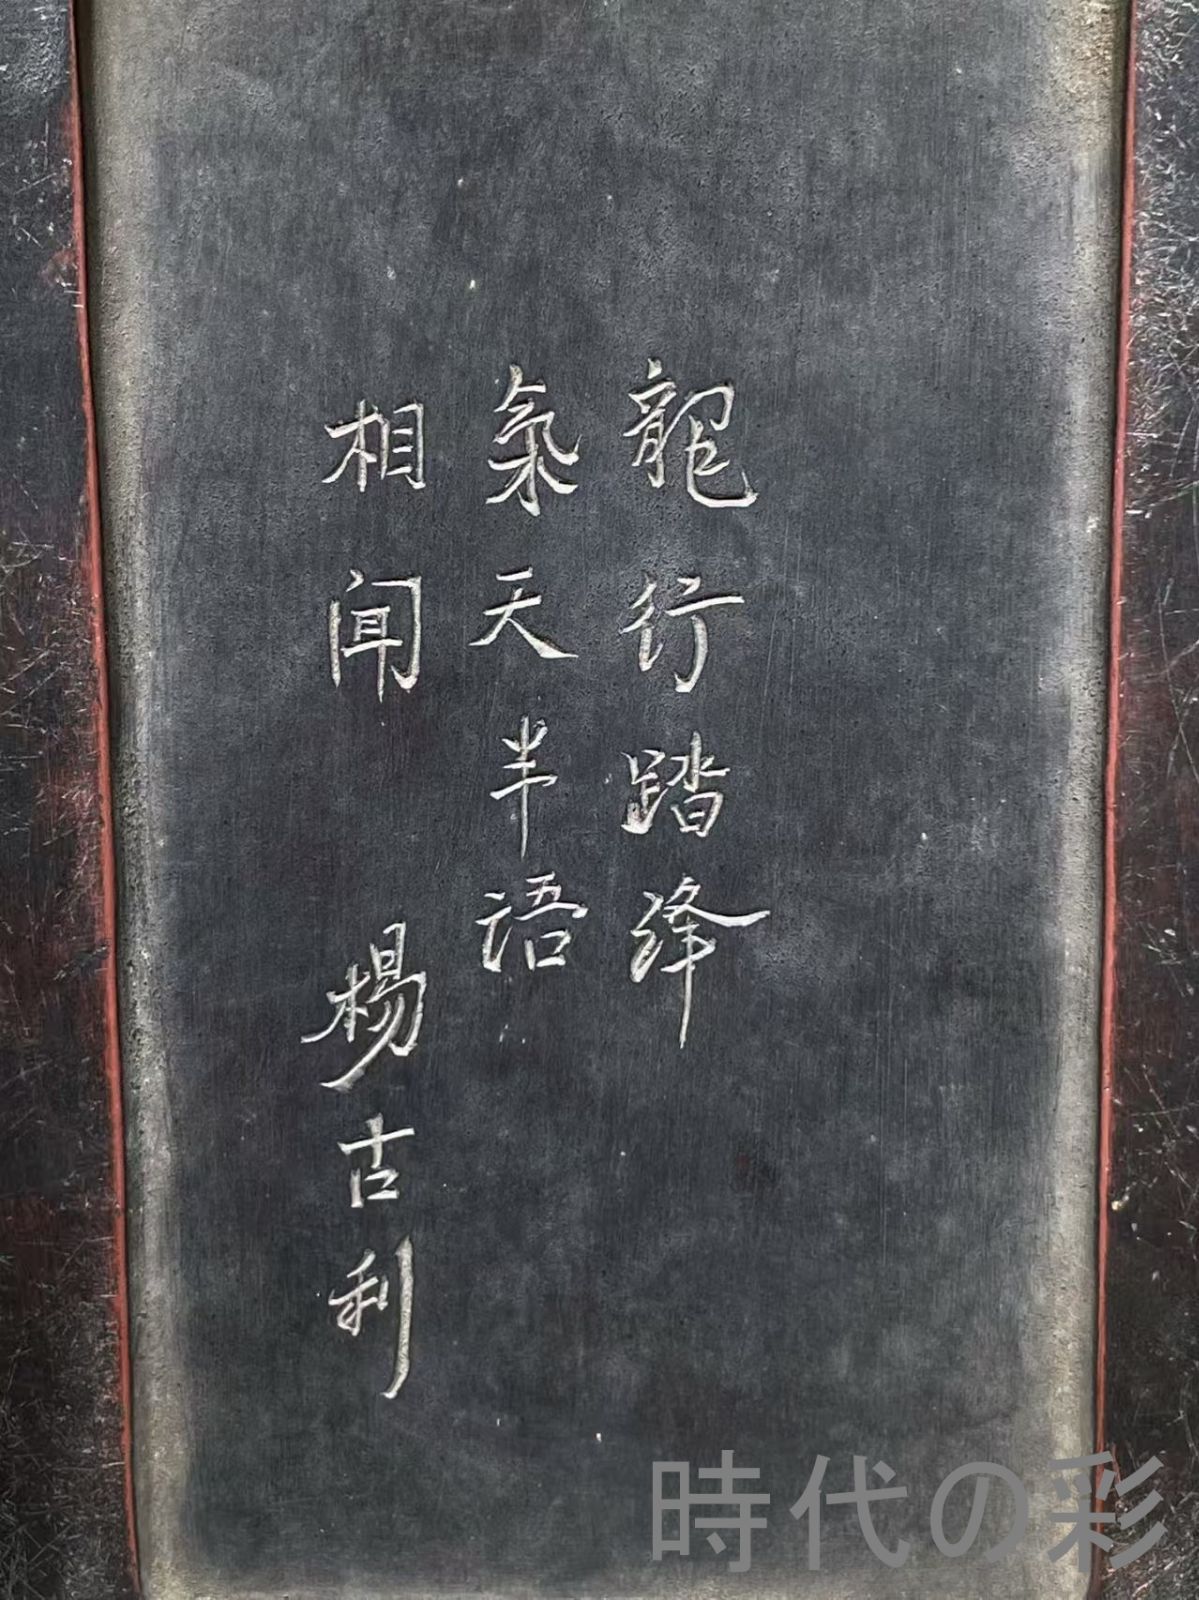 龍行踏绛
氣天半语
相闻 楊古利
時代の彩